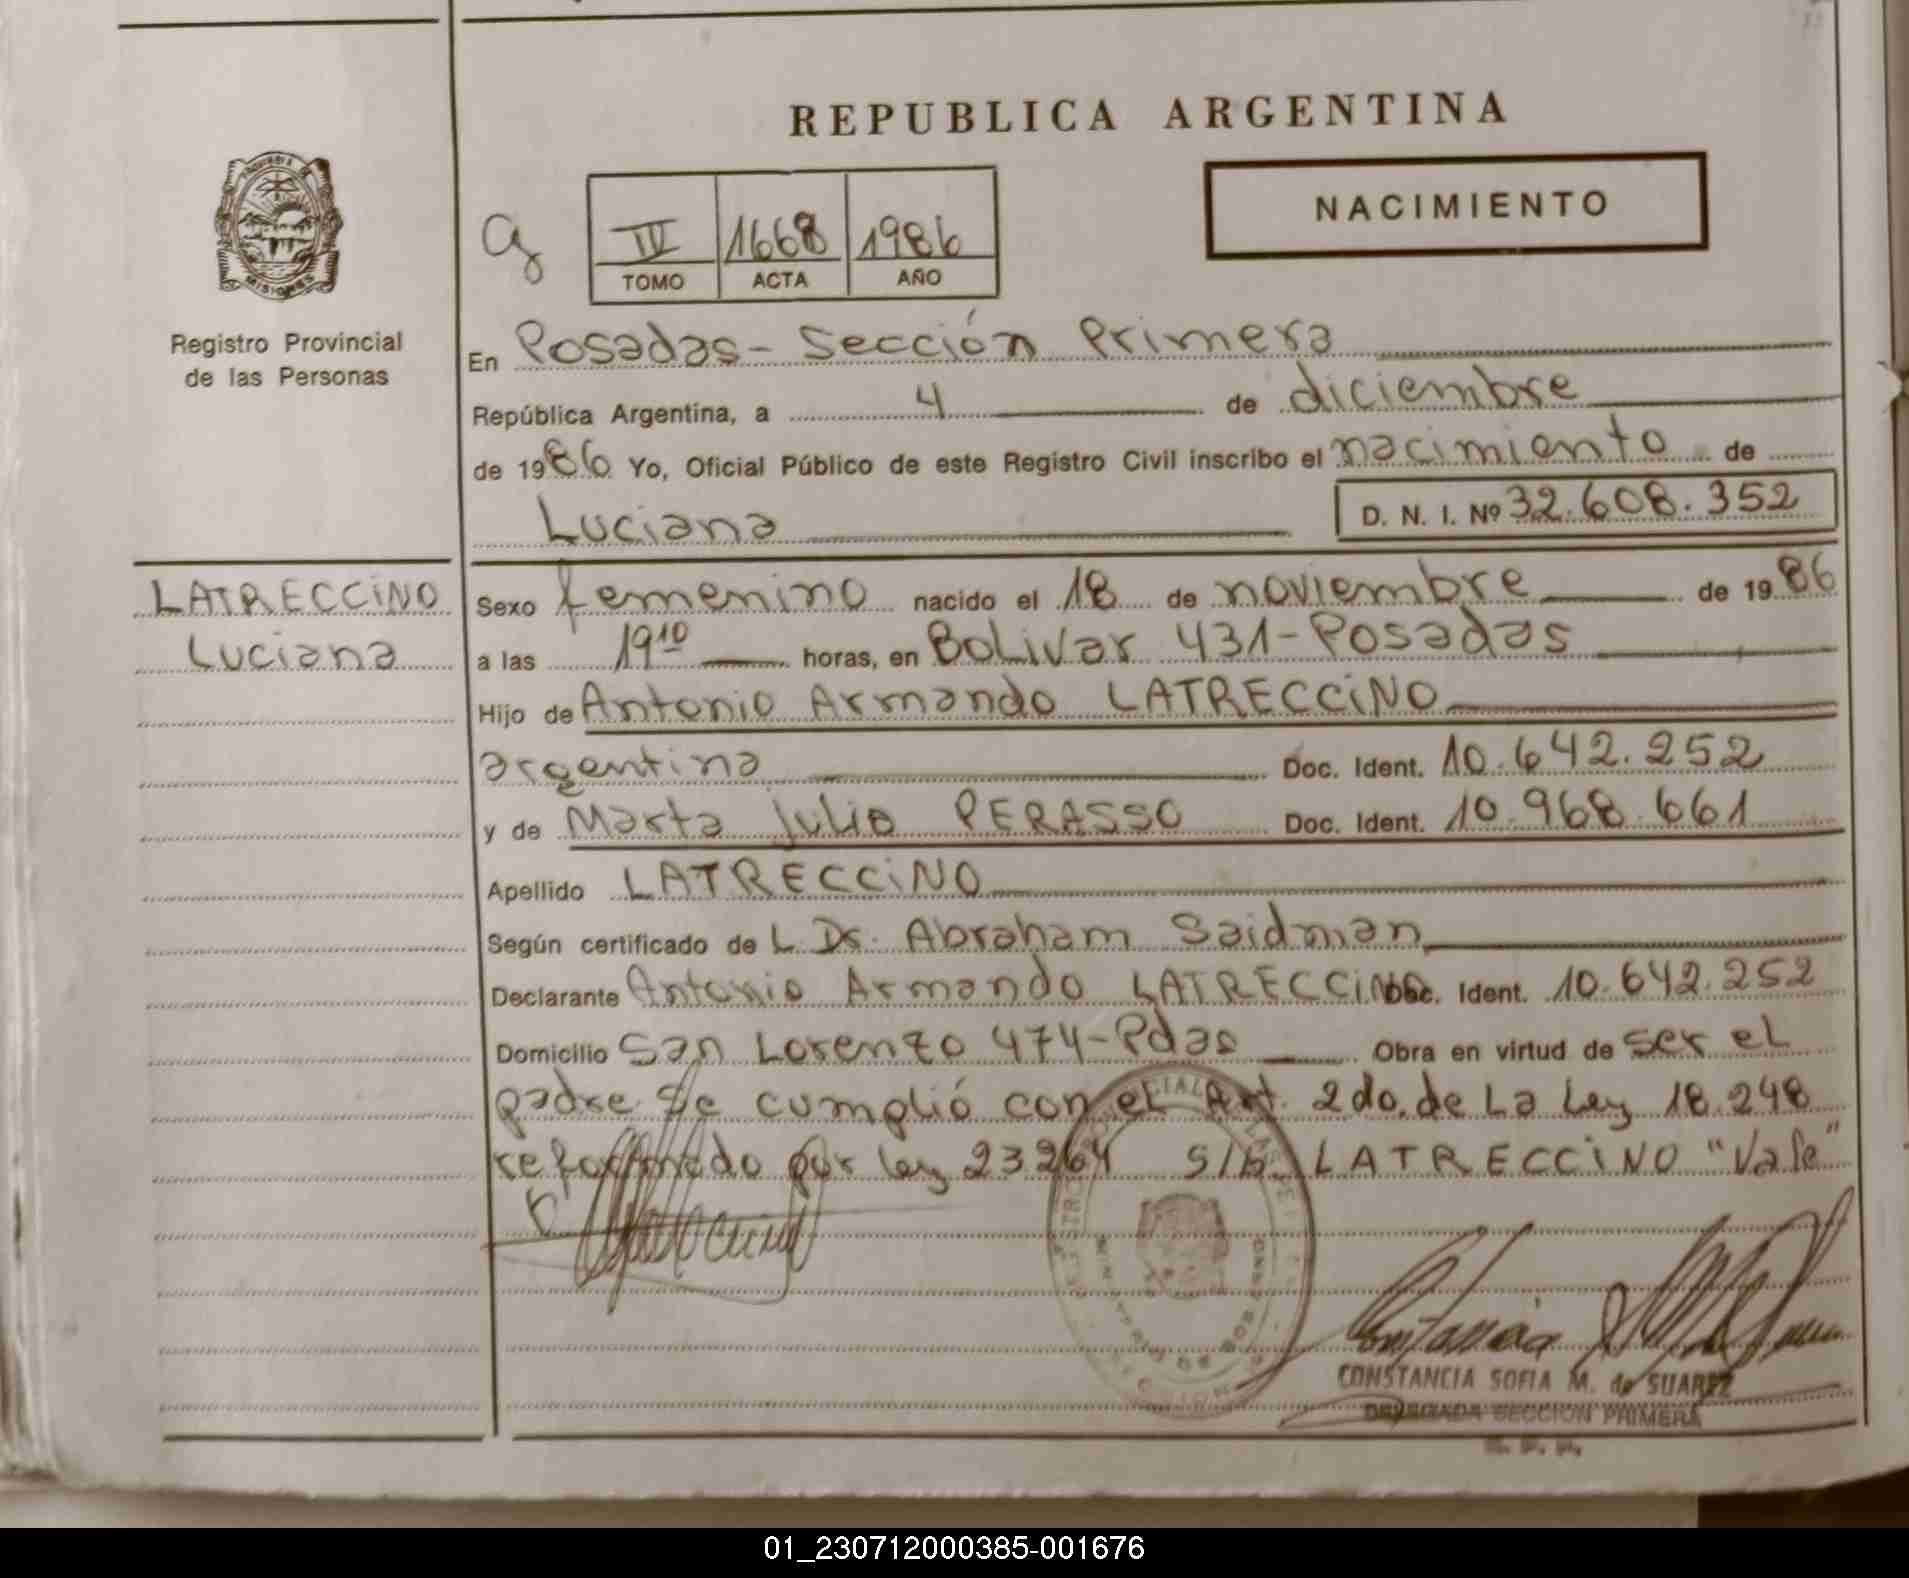 REPUBLICA ARGENTINA
NACIMIENTO
IV 1668 1986
TOMO ACTA AÑO
MISIONES
Registro Provincial
de las Personas
En Posadas - Sección Primera
República Argentina, a 4 de diciembre
de 1986 Yo, Oficial Público de este Registro Civil inscribo el nacimiento de
Luciana D. N. I. Nº 32.608.352
LATRECCiNO
Luciana
Sexo femenino nacido el 18 de noviembre de 1986
a las 19¹⁰ horas, en Bolivar 431 - Posadas
Hijo de Antonio Armando LATRECCiNO
argentina Doc. Ident. 10.642.252
y de Marta Julia PERASSO Doc. Ident. 10.968.661
Apellido LATRECCiNO
Según certificado de L Dr. Abraham Saidman
Declarante Antonio Armando LATRECCiNO Doc. Ident. 10.642.252
Domicilio San Lorenzo 474 - Pdas Obra en virtud de ser el
padre Se cumplió con el Art. 2do. de La Ley 18.248
reformado por ley 23264 S/b. LATRECCiNO "Vale"
CONSTANCIA SOFIA M. de SUAREZ
DELEGADA SECCION PRIMERA
01_230712000385-001676